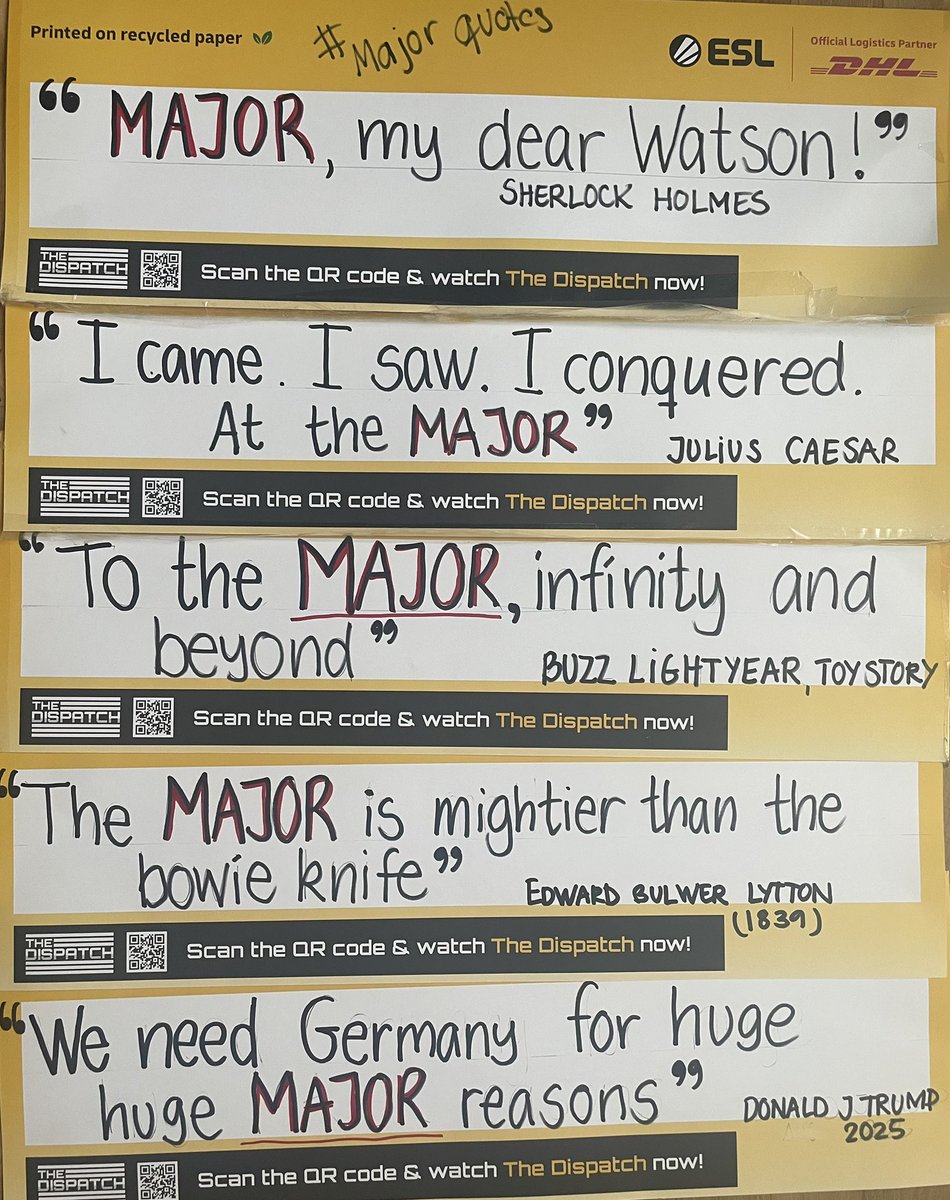 Printed on recycled paper
#Major quotes
ESL
Official Logistics Partner
DHL
“MAJOR, my dear Watson!”
SHERLOCK HOLMES
THE DISPATCH
Scan the QR code & watch The Dispatch now!
“I came. I saw. I conquered.
At the MAJOR”
JULIUS CAESAR
THE DISPATCH
Scan the QR code & watch The Dispatch now!
“To the MAJOR, infinity and
beyond”
BUZZ LIGHTYEAR, TOY STORY
THE DISPATCH
Scan the QR code & watch The Dispatch now!
“The MAJOR is mightier than the
bowie knife”
EDWARD BULWER LYTTON
(1839)
THE DISPATCH
Scan the QR code & watch The Dispatch now!
“We need Germany for huge
huge MAJOR reasons”
DONALD J TRUMP
2025
THE DISPATCH
Scan the QR code & watch The Dispatch now!